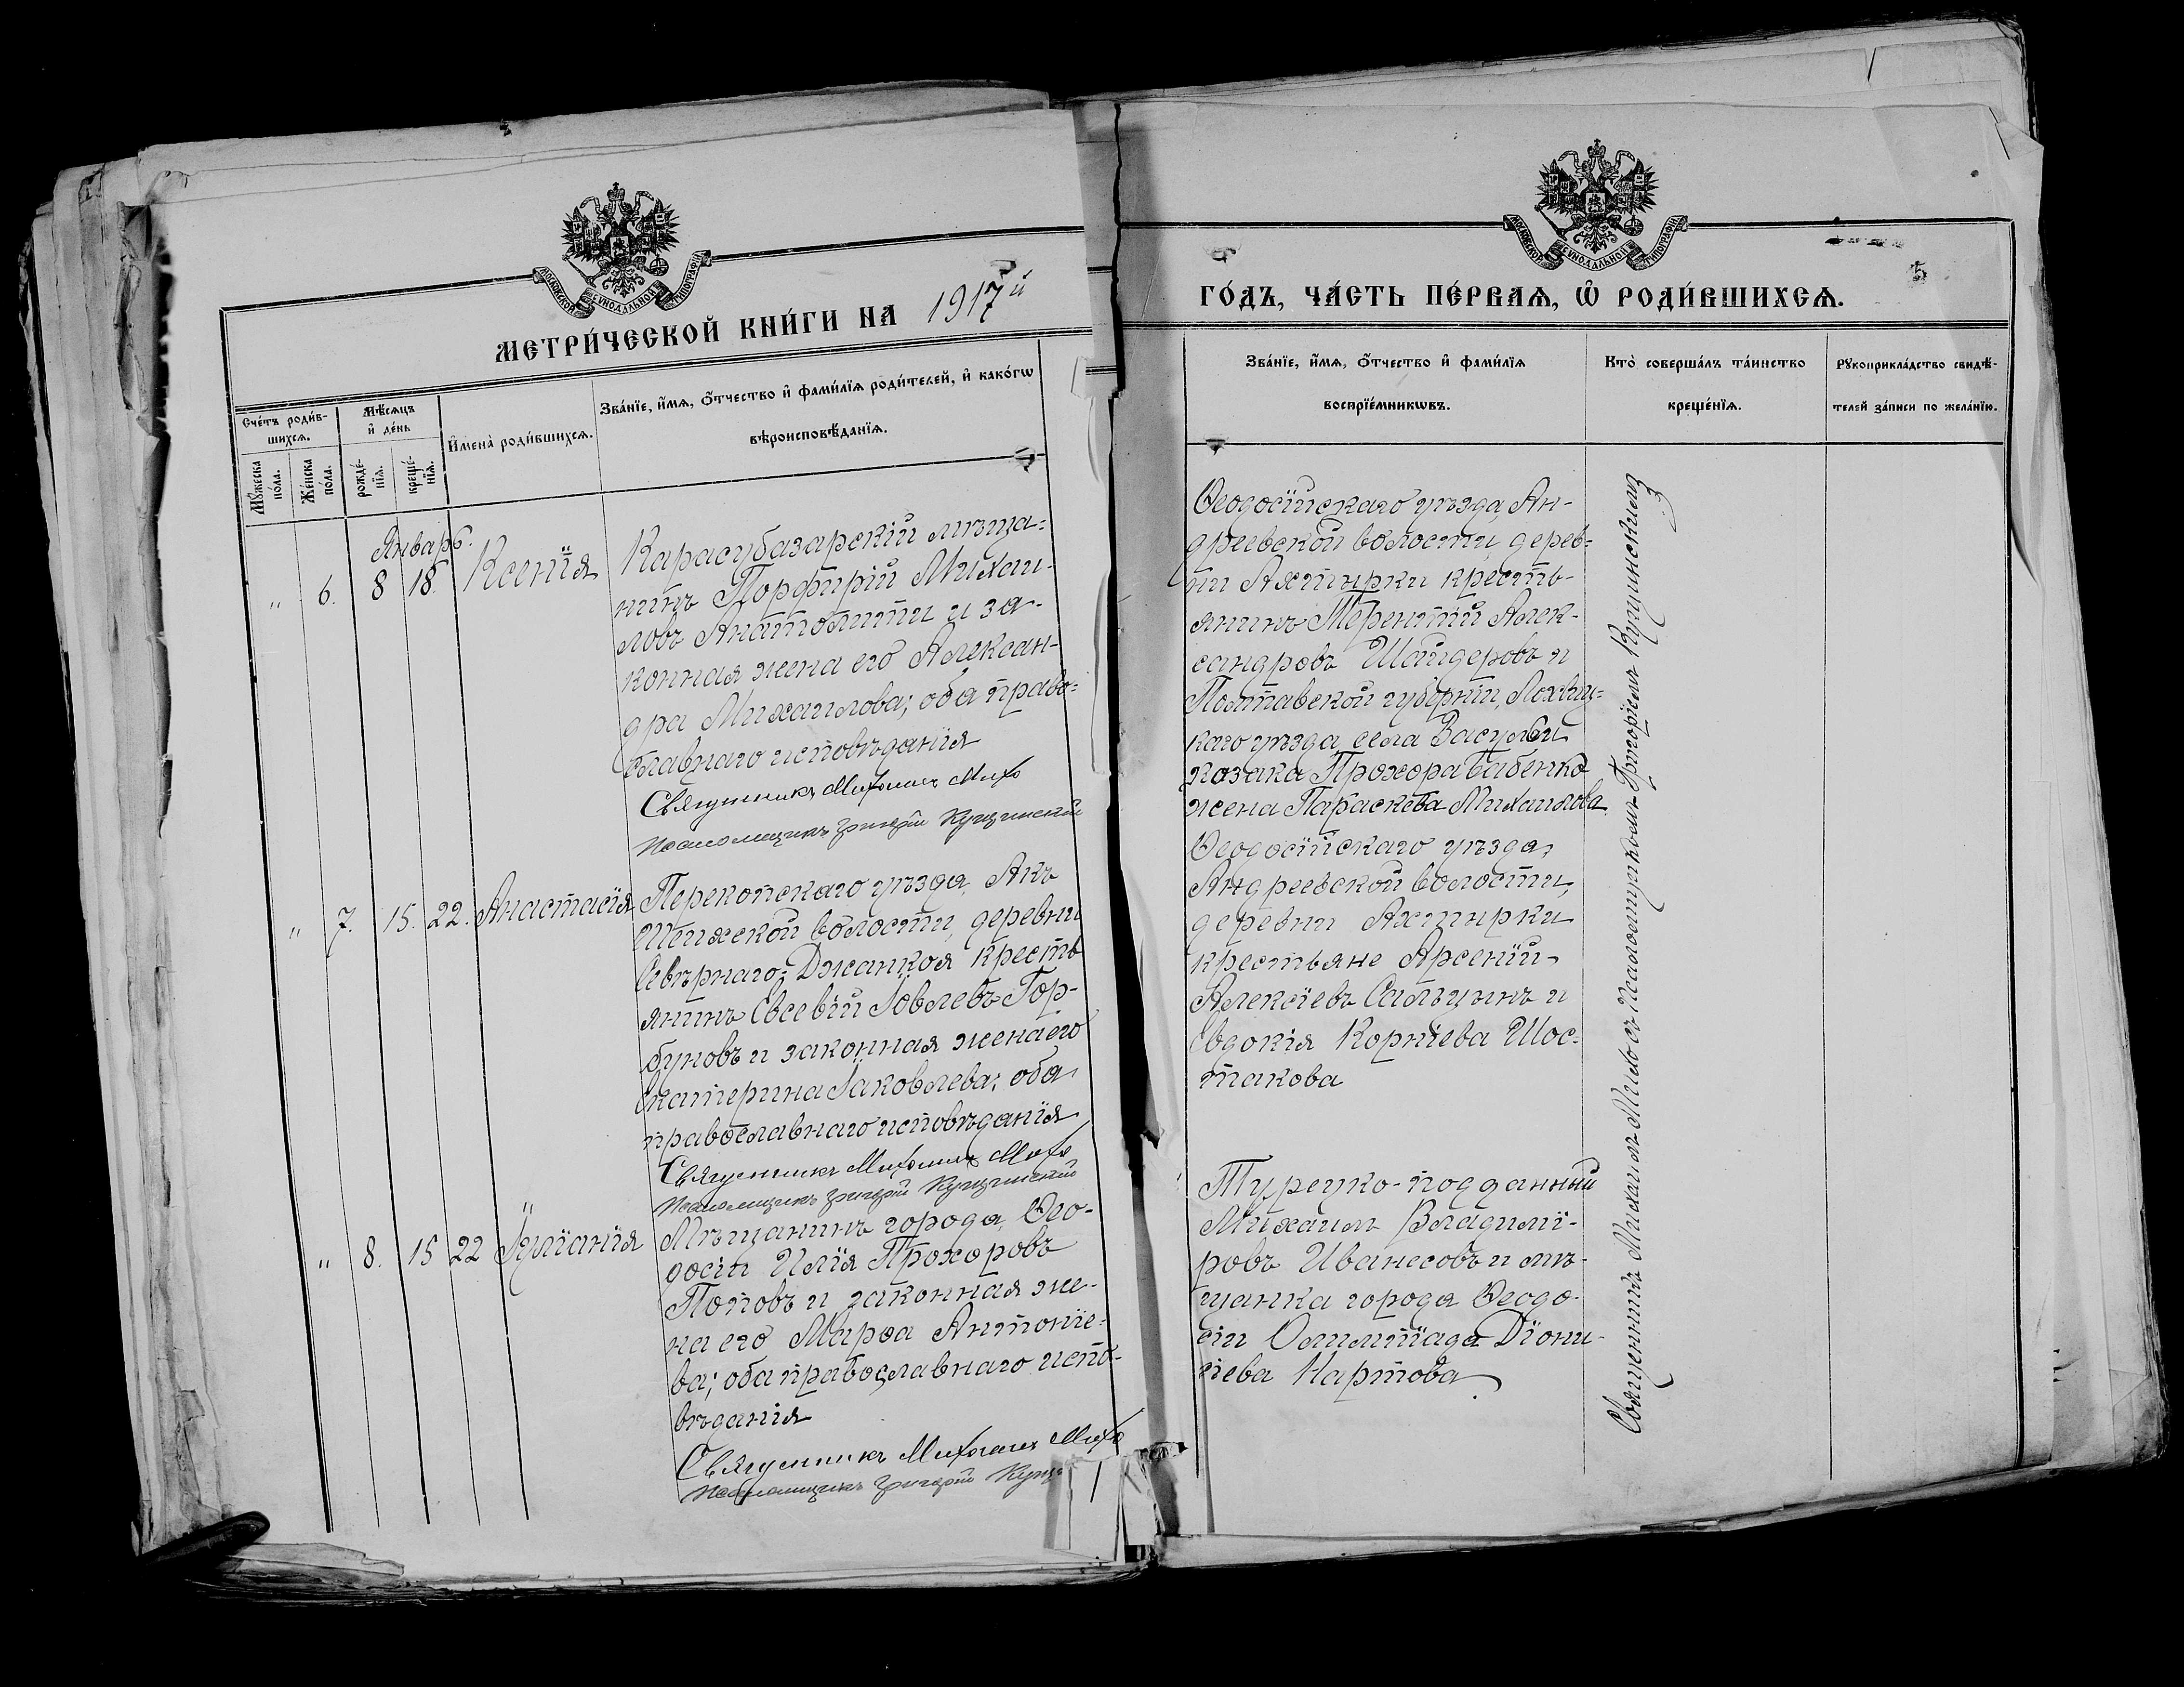 МОСКОВСКОЙ СѴНОДАЛЬНОЙ ТИПОГРАФІИ
МЕТРИ́ЧЕСКОЙ КНИ́ГИ НА 1917й
Сче́тъ роди́в-
шихсѧ.
Мꙋ́жеска
по́ла.
Же́нска
по́ла.
Мѣ́сѧцъ
и҆ де́нь
рожде́-
нїѧ.
креще́-
нїѧ.
И҆мена̀ роди́вшихсѧ.
Зва́нїе, и҆́мѧ, ѻ҆́тчество и҆ фами́лїѧ роди́телей, и҆ како́гѡ
вѣроисповѣ́данїѧ.
Январь.
" 6. 8 18. Ксенія
Карасубазарскій мѣща-
нинъ Порфирій Михаи-
ловъ Анатолити и за-
конная жена его Алексан-
дра Михаилова; оба право-
славнаго исповѣданія
Священникъ Михаилъ Михо
Псаломщикъ Григорій Кущинскій
" 7. 15. 22. Анастасія
Перекопскаго уѣзда, Акъ
Шеихской волости, деревни
Сѣвернаго-Джанкоя кресть
янинъ Евсевій Іовлевъ Гор-
буновъ и законная жена его
Екатерина Іаковлева; оба
православнаго исповѣданія
Священникъ Михаилъ Михо
Псаломщикъ Григорій Кущинскій
" 8. 15 22 Іуліанія
Мѣщанинъ города Ѳео-
досіи Илія Прохоровъ
Поповъ и законная же-
на его Марѳа Антоніе-
ва; оба православнаго испо-
вѣданія
Священникъ Михаилъ Михо
Псаломщикъ Григорій Кущ
МОСКОВСКОЙ СѴНОДАЛЬНОЙ ТИПОГРАФІИ
5
ГО́ДЪ, ЧА́СТЬ ПЕ́РВАѦ, Ѡ҆ РОДИ́ВШИХСѦ.
Зва́нїе, и҆́мѧ, ѻ҆́тчество и҆ фами́лїѧ
воспрїе́мникѡвъ.
Кто̀ соверша́лъ та́инство
креще́нїѧ.
Рꙋкоприкла́дство свидѣ́-
телей за́писи по жела́нїю.
Ѳеодосійскаго уѣзда, Ан-
дреевской волости, дерев-
ни Ахтырки кресть-
янинъ Терентій Алек-
сандровъ Шайдеровъ и
Полтавской губерніи, Лохвиц-
каго уѣзда, села Засулья
козака Прохора Бабенко
жена Параскева Михаилова
Ѳеодосійскаго уѣзда,
Андреевской волости,
деревни Ахтырки
крестьяне Арсеній
Алексіевъ Сальцынъ и
Евдокія Корніева Шос-
такова
Турецко-подданный
Михаилъ Владимі-
ровъ Иванесовъ и мѣ-
щанка города Ѳеодо-
сіи Олимпіада Діони-
сіева Картова
Священникъ Михаилъ Михо съ Псаломщикомъ Григоріемъ Кущинскимъ